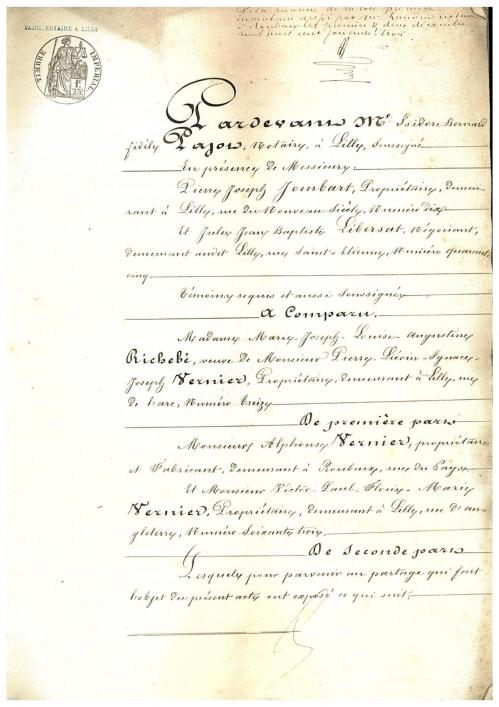 PAJOT, NOTAIRE A LILLE
TIMBRE IMPERIAL
Pardevant Me Isidore Bernard
fidèle Pajot, Notaire, à Lille, soussigné
En présence de Messieurs
Pierre Joseph Jombart, Propriétaire, demeu-
rant à Lille, rue du Nouveau Siècle, Numéro dix
Et Jules Jean Baptiste Libersat, Négociant,
demeurant audit Lille, rue Saint-Etienne, Numéro quarante
cinq
Témoins requis et aussi soussignés
A Comparu.
Madame Marie-Joseph-Louise-Augustine
Richebé, veuve de Monsieur Pierre-Liévin-Ignace-
Joseph Vernier, Propriétaire, demeurant à Lille, rue
de Numéro treize
De première part
Monsieur Alphonse Vernier, propriétaire
et Fabricant, demeurant à Roubaix, rue du Pays
Et Monsieur Victor-Paul-Florix-Marie
Vernier, Propriétaire, demeurant à Lille, rue d'an-
gleterre, Numéro Soixante trois
De Seconde part
Lesquels pour parvenir au partage qui fait
l'objet du présent acte ont exposé ce qui suit.